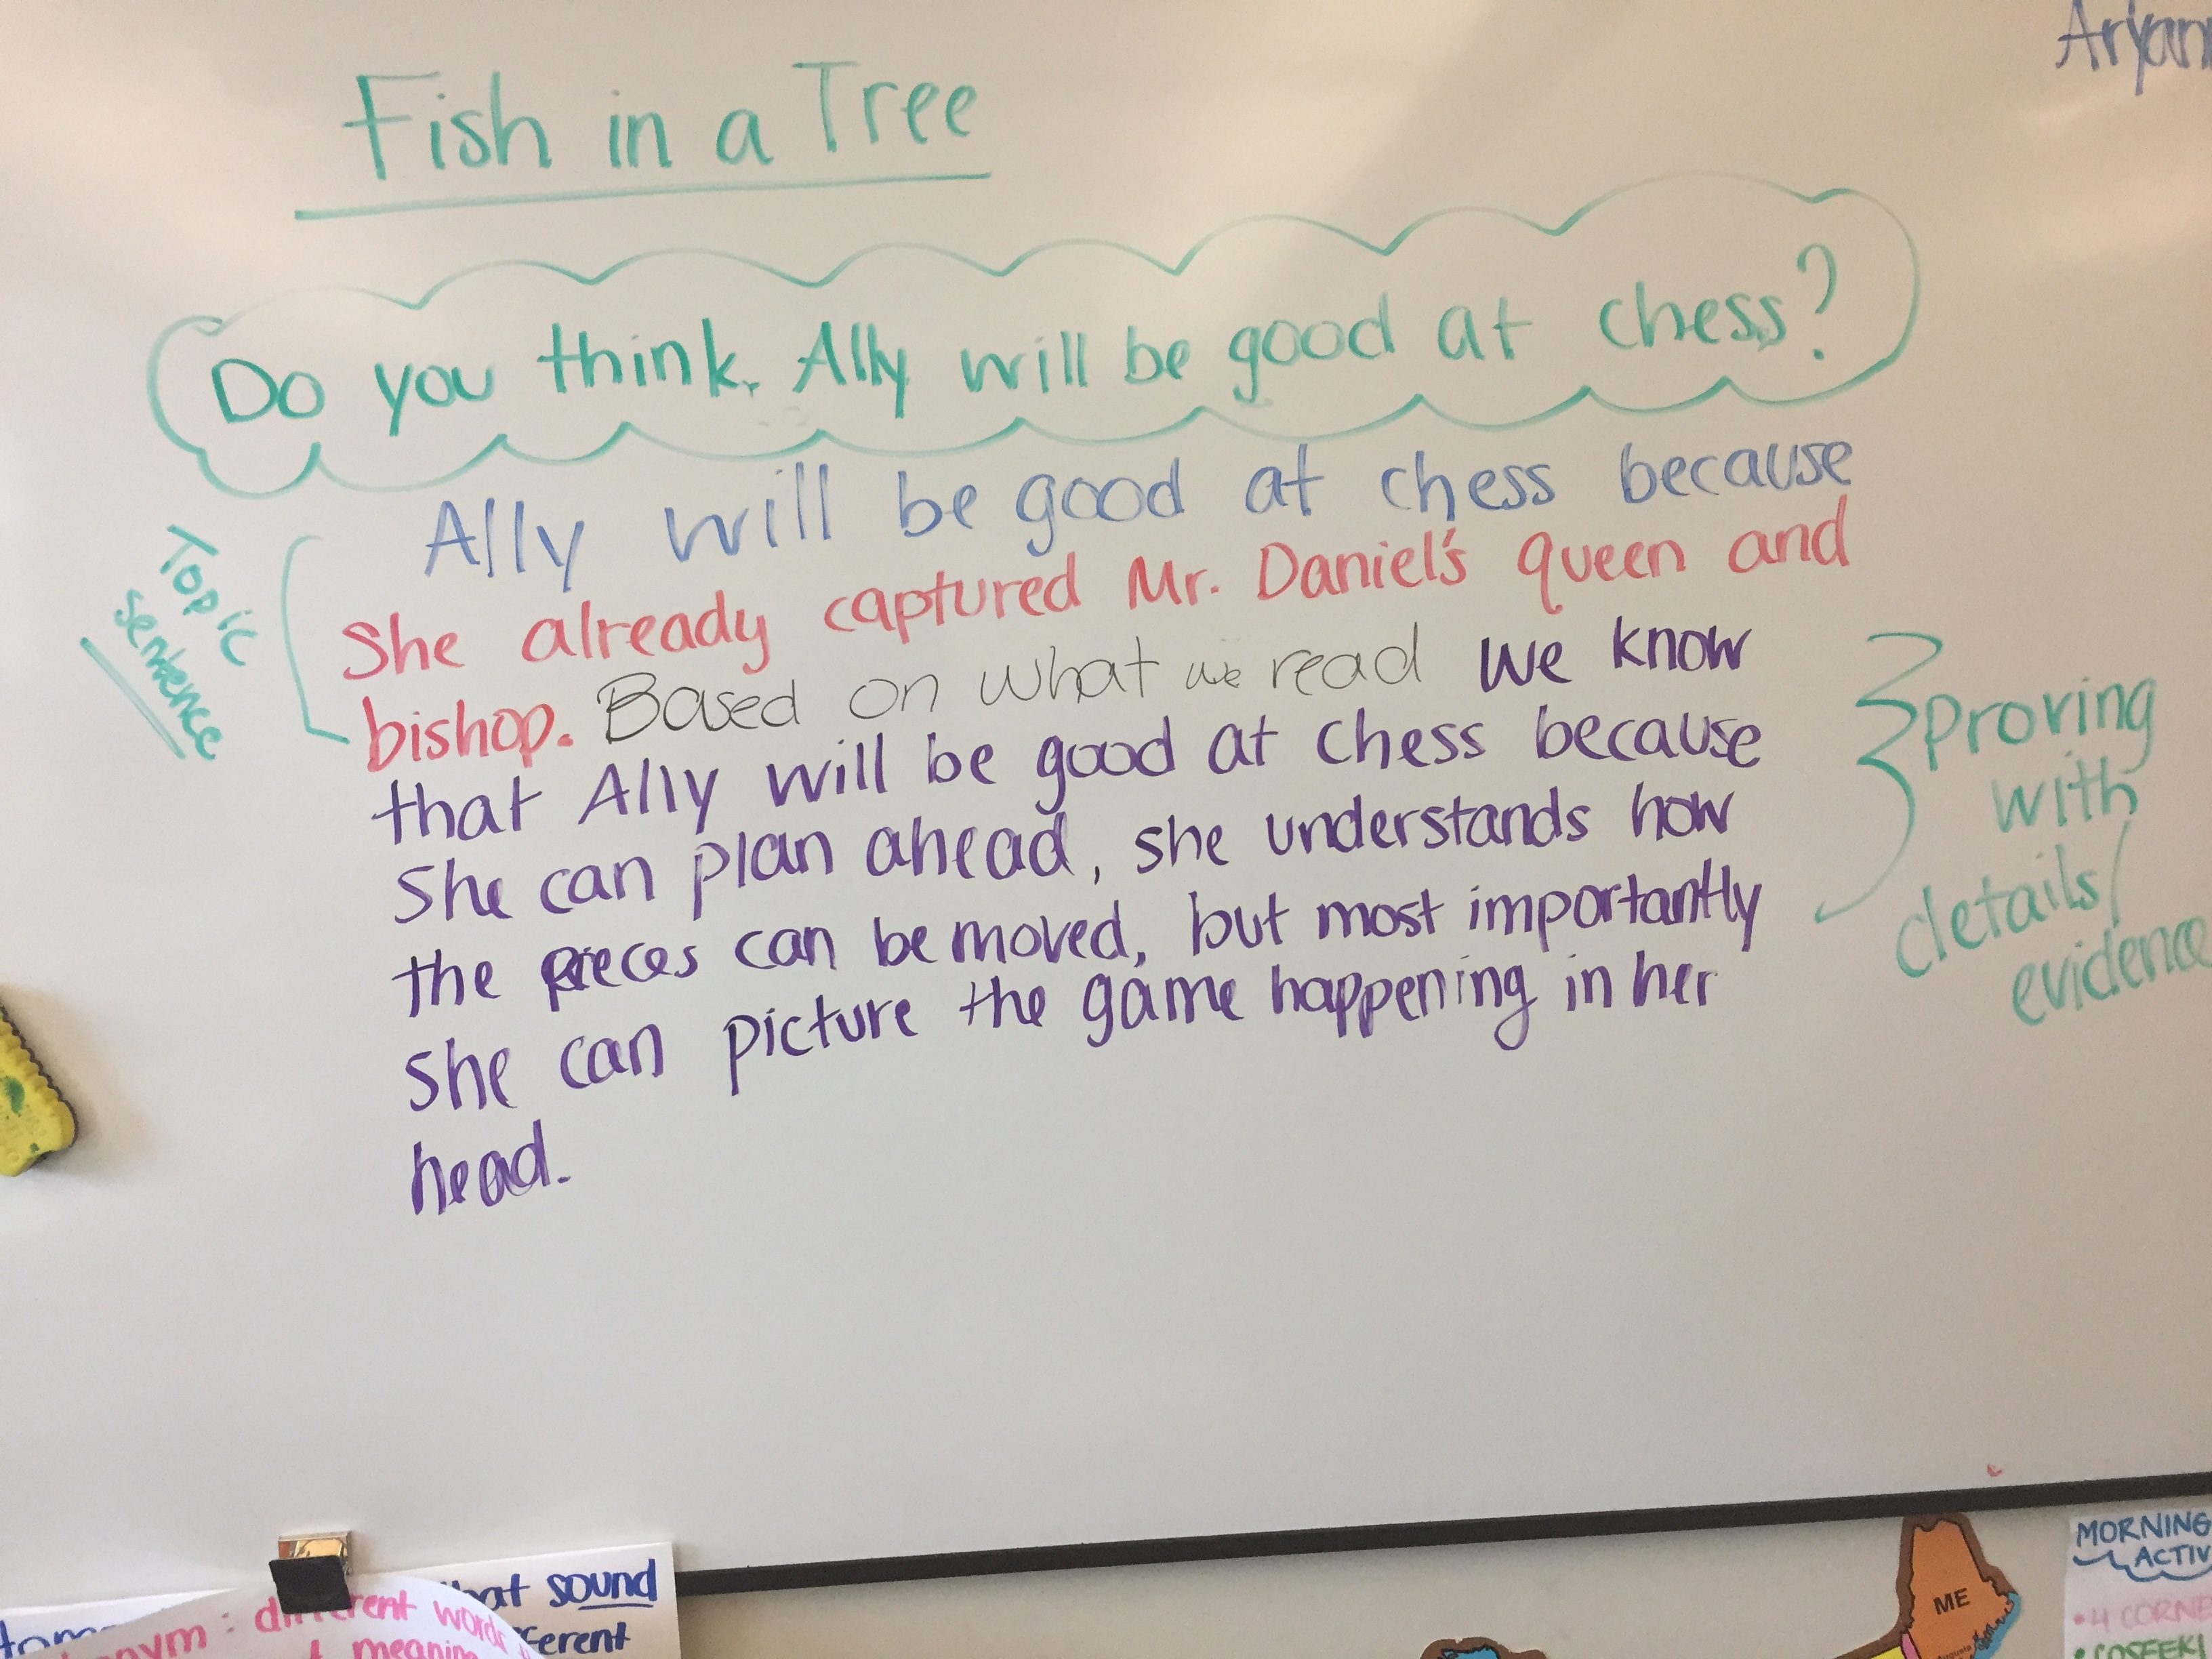 Fish in a Tree
Do you think Ally will be good at chess?
Ally will be good at chess because
She already captured Mr. Daniel's queen and
bishop. Based on what we read we know
that Ally will be good at chess because
she can plan ahead, she understands how
the pieces can be moved, but most importantly
she can picture the game happening in her
head.
Topic
sentence
proving
with
details/
evidence
hat sound
different words
ferent
meaning
ME
MORNING
ACTIV
• 4 CORNE